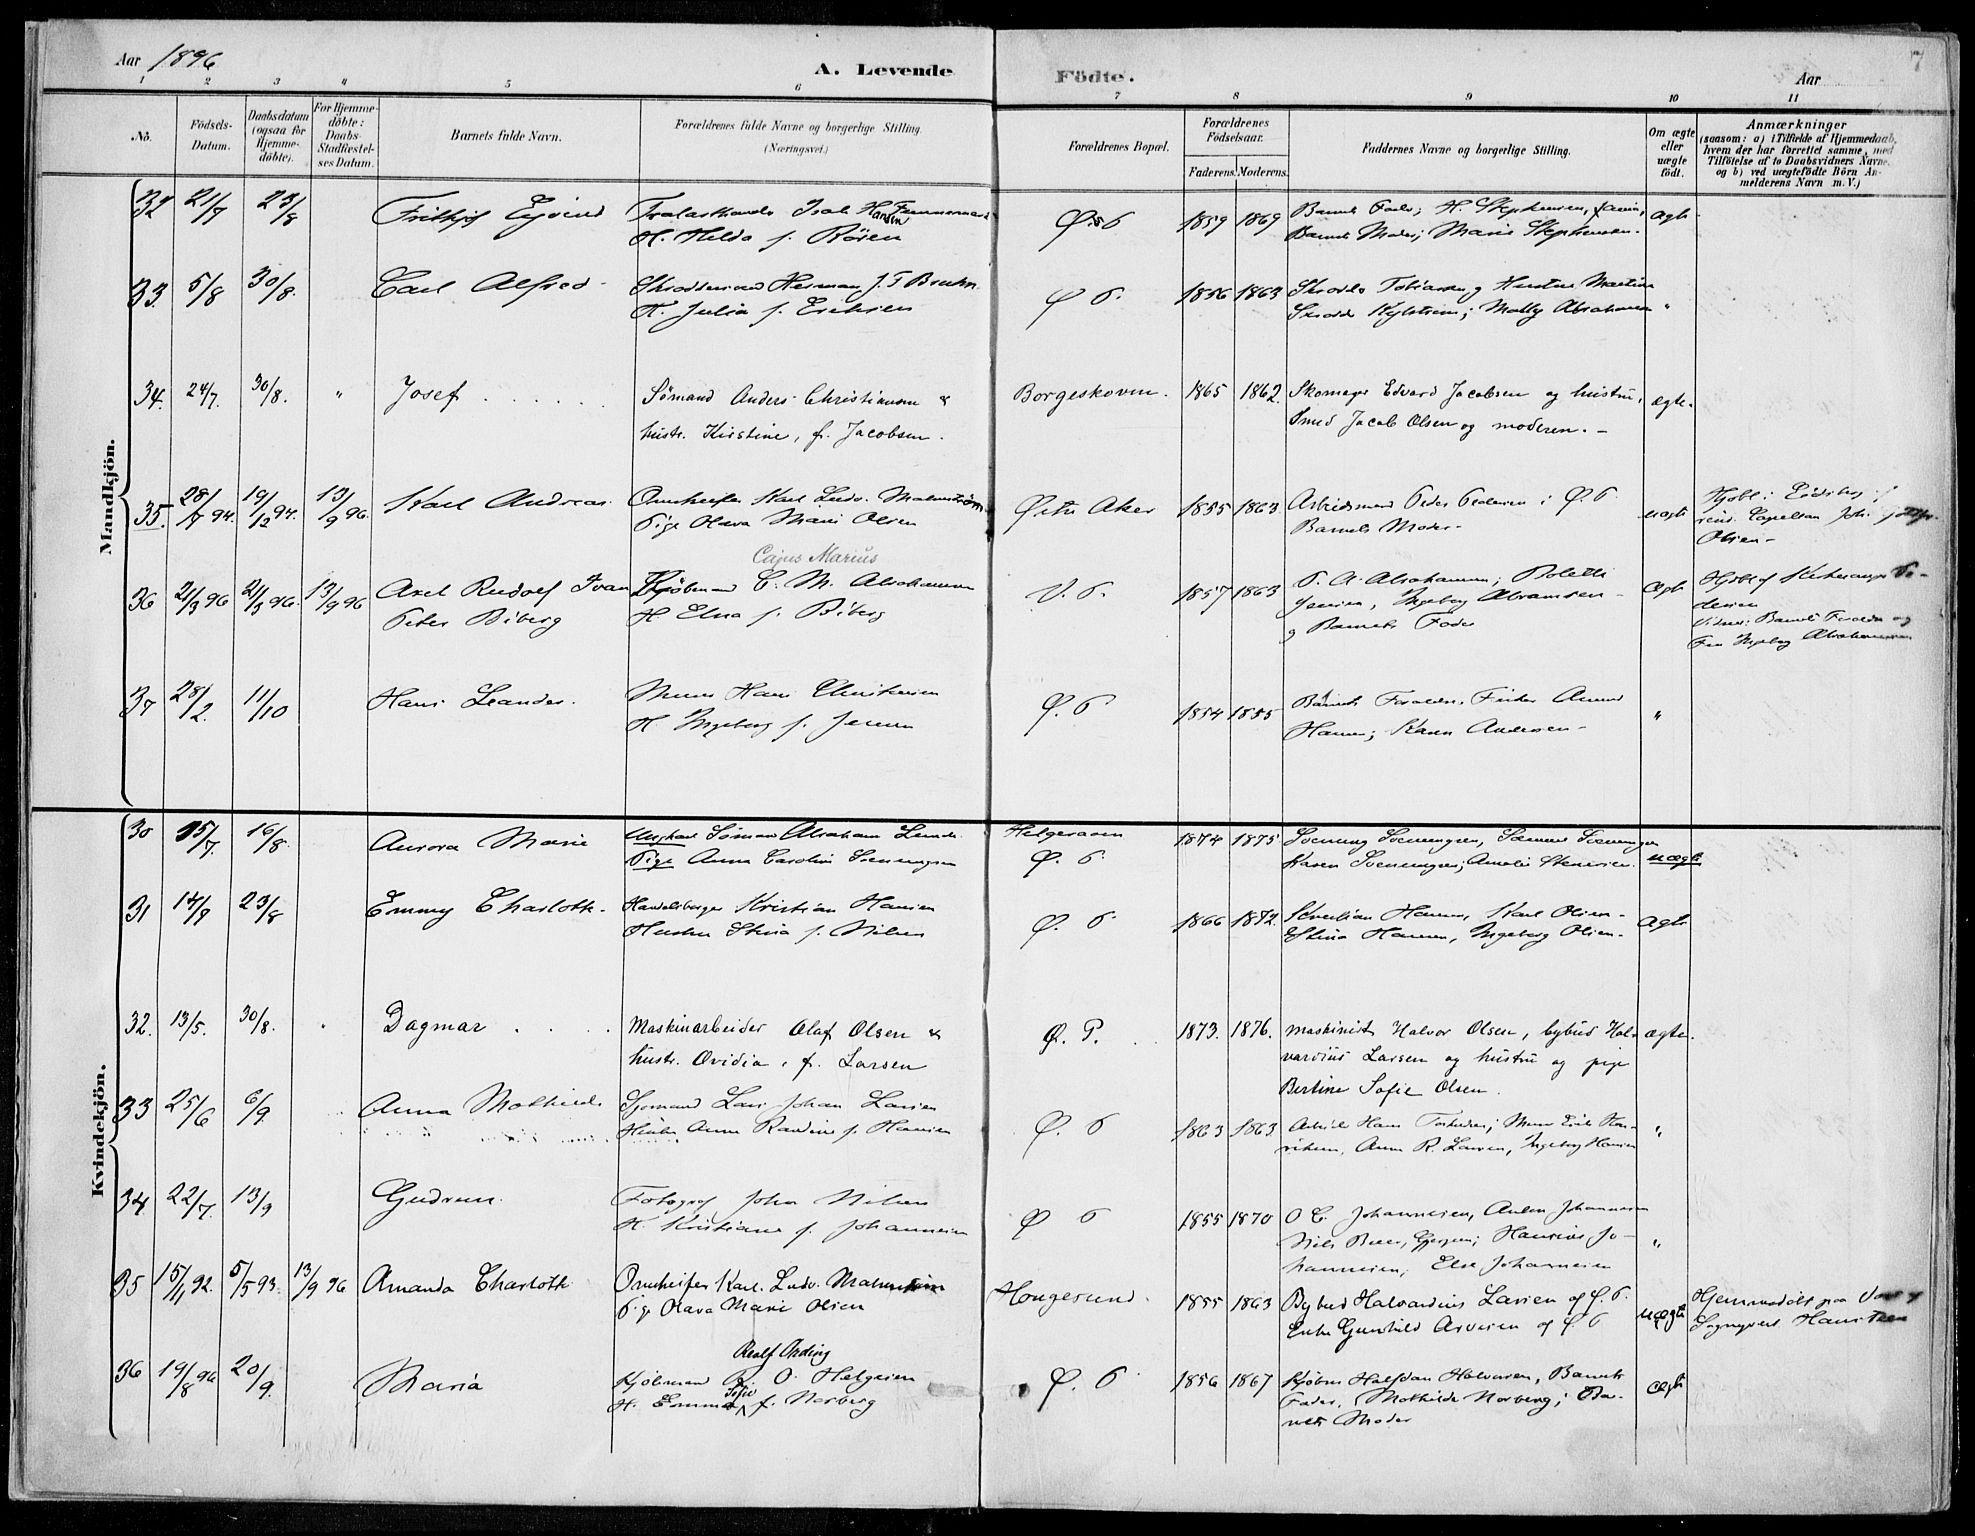 Aar 1896
A. Levende
Födte.
Aar
7
1 2 3 4 5 6 7 8 9 10 11
No.
Födsels-Datum.
Daabsdatum (ogsaa for Hjemmedöbte).
For Hjemmedöbte: Daabs-Stadfæstelses Datum.
Barnets fulde Navn.
Forældrenes fulde Navne og borgerlige Stilling.
(Næringsvei.)
Forældrenes Bopæl.
Forældrenes Födselsaar.
Faderens. Moderens.
Faddernes Navne og borgerlige Stilling.
Om ægte eller uægte födt.
Anmærkninger
(saasom: a) i Tilfælde af Hjemmedaab, hvem der har forrettet samme, med Tilföielse af to Daabsvidners Navne, og b) ved uægtefödte Börn Anmelderens Navn m. V.)
Mandkjön.
32 21/7 23/8 Frithjof Eyvind
H. Hilda f. Rosen
Ø. P 1859 1869
Barnets Fader; H. Stephensen,
Barnets Moder; Marie Stephensen. ægte
33 5/8 30/8. Carl Alfred
Skræddersvend Herman J. T. Bruhn
H. Julia f. Eriksen
Ø P. 1856 1863
Skrædder Tobiassen og Hustru Martine
Skrædder; Molly Abrahamsen "
34. 24/7. 30/8. " Josef . . . . . .
Sømand Anders Christiansen &
hustr. Kirstine, f. Jacobsen.
Borgeskoven. 1865 1862.
Skomager Edvard Jacobsen og hustru,
Smed Jacob Olsen og moderen. – ægte.
35. 28/7 94. 19/12 94. 13/9 96. Karl Andreas
Omstreifer Karl Ludv. Malmstrøm
Pige Olava Marie Olsen
Østre Aker 1855 1863
Arbeidsmand Peder Pedersen i Ø. P
Barnets Moder – uægte
Hjdbt i Eidsberg af
Olsen –
36 21/3 96 21/5 96. 13/9 96 Axel Rudolf Ivan
Peter Biberg
Cajus Marius
Kjøbmand C. M. Abrahamsen
H. Elna f. Biberg
V. P. 1857 1863
P. A. Abrahamsen; Bolette
Jensen, Ingeborg Abramsen –
og Barnets Fader Ægte
Hjdbt af Pedersen
Vidner: Barnets Forældre og
Fru Ingeborg Abrahamsen
37 28/2. 11/10 Hans Leander.
Murer Hans Christensen
H Ingeborg f. Jensen
Ø. P 1854 1855
Barnets Forældre, Amund
Hansen; Karen Andersen – "
Kvindekjön.
30 15/7. 16/8. Aurora Marie
Ungkarl Sømand Abraham
Pige Anna Caroline Svenningsen
Helgeraaen
Ø. P 1874 1875
Svenning Svenningsen, Svenningsen
Karen Svenningsen; Amalie uægte
31 14/7 23/8 Emmy Charlotte.
Handelsborger Kristian Hansen
Hustru Stina f. Nilsen
Ø. P 1866 1872.
Kristian Hansen, Karl Olsen –
Stina Hansen, Ingeborg Olsen – Ægte
32. 13/5. 30/8. " Dagmar . . . .
Maskinarbeider Olaf Olsen &
hustr. Ovidia, f. Larsen
Ø. P. 1873. 1876.
maskinist Halvor Olsen, bybud Hal-
vardius Larsen og hustru og pige
Bertine Sofie Olsen. ægte.
33 25/6 6/9. Anna Mathilde
Sjømand Lars Johan Larsen
Hustru Anna f. Hansen
Ø. P 1863 1863
Arbeider Hans
Anna R. Larsen, Ingeborg Hansen "
34 22/7. 13/9 Gudrun.
Fotograf John Nilsen
H. Kristiane f. Johannesen
Ø P 1855 1870
O C. Johannesen, Johannesen
Niels; Hansine Jo-
hannesen, Else Johannesen "
35 15/11 92. 5/5 93. 13/9 96 Amanda Charlotte
Omstreifer Karl Ludv. Malmstrøm
Pige Olava Marie Olsen
Hougesund. 1855 1863
Bybud Halvardius Larsen af Ø. P.
Enke Gunhild af Ø. P uægte
Hjemmedøbt paa
Sognepræst
36 19/8 96 20/9. Maria
Roalf Onding
Kjøbmand R. O. Helgesen
H. Emma Sofie f. Norberg
Ø. P. 1856 1867
Kjøbm Halfdan Halvorsen, Barnets
Fader, Mathilde Norberg; Bar-
nets Moder ægte